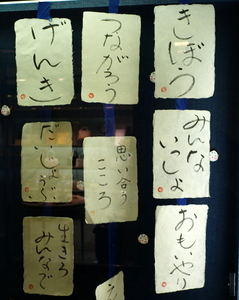 きぼう
みんな
いっしょ
おもいやり
つながろう
思い合う
こころ
そ
げんき
だいじょぶ
生きろ
みんなで